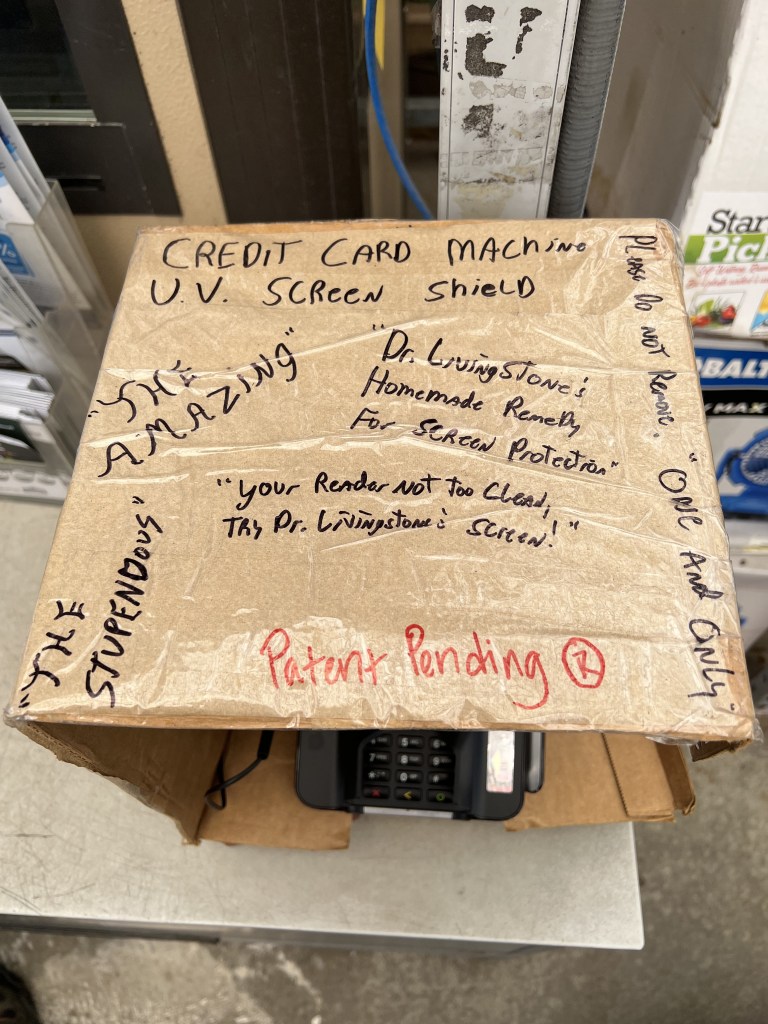 CREDIT CARD MACHINE
U.V. SCREEN SHIELD
"THE
AMAZING"
"Dr. Livingstone's
Homemade Remedy
For Screen Protection"
"Your Reader Not Too Clean,
Try Dr. Livingstone's Screen!"
"THE
STUPENDOUS"
Please Do Not Remove. "One And Only"
Patent Pending ®
Star
Pic
OBALT
MAX
%
5
6
7
8
9
0
#